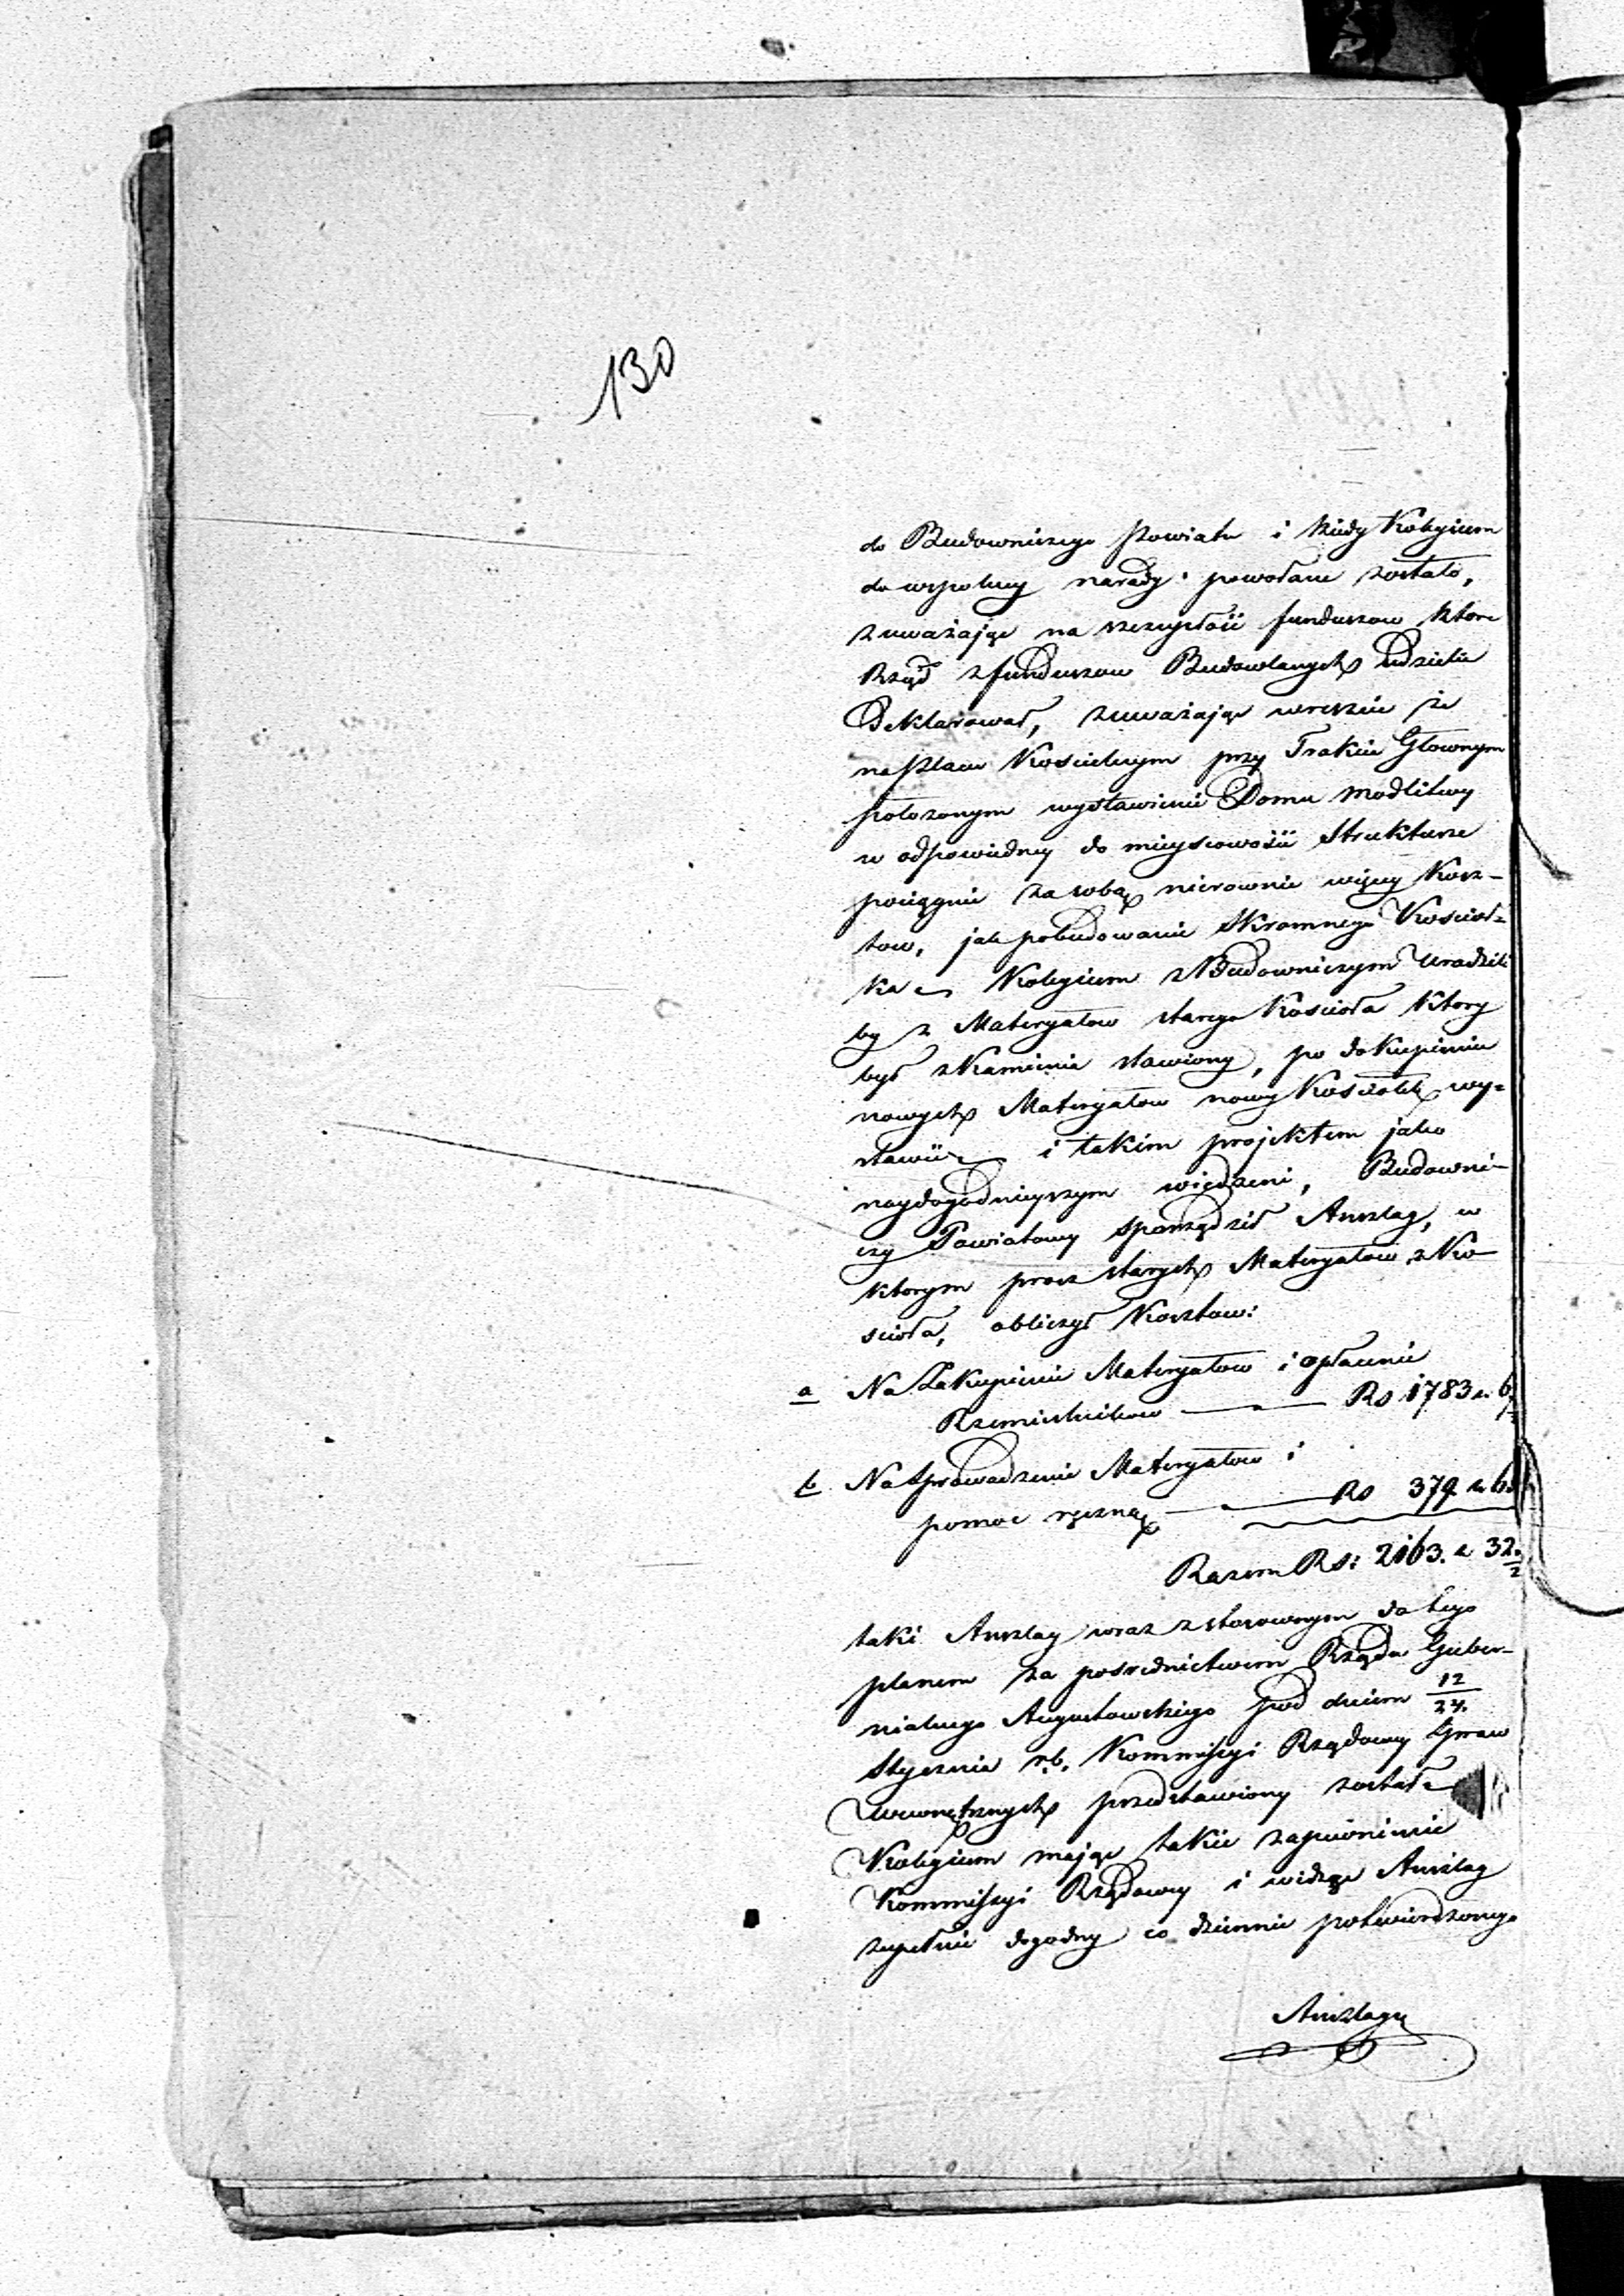 130
do Budowniczego Powiatu i kiedy Kolegium
do wspolney narady powołane zostało,
zuważając na szczupłość funduszow ktore
Rząd z funduszow Budowlanych udzielić
Deklarował, zuważając wreszcie że
na placu Kościelnym przy Trakcie Głownym
połozonym wystawienie Domu modlitwy
w odpowiedney do mieyscowości Strukturze
pociągnie za sobą nierownie więcey Kosz-
tow, jak pobudowanie Skromnego Kościoł-
ka Kolegium z Budowniczym uradzili
by z Materyałow starego Kościoła ktory
był z Kamienia stawiony, po dokupieniu
nowych Materyałow nowy Kosciołek wy-
stawić i takim projektem jako
naydogodnieyszym wiedzeni, Budowni-
czy Powiatowy sporządził Anszlag, w
ktorym procz starych Materyałow z Ko-
scioła, obliczył Kosztow:
a Na Zakupienie Materyałow i opłacenie
Rzemieslnikow Rs 1783 k 6
b Na Sprowadzenie Materyałow i
pomoc ręczną Rs 379 k
Razem Rs: 2163. k 32.
taki Anszlag wraz z stosownym do tego
planem za posrednictwem Rządu Guber-
nialnego Augustowskiego pod dniem 12/24.
Stycznia r.b. Kommissyi Rządowey Spraw
Wewnętrznych przedstawiony został
Kolegium mając takie zapewnienie
Kommissyi Rządowey i widząc Anszlag
zupełnie dogodny co dziennie potwierdzonego
Anszlagu